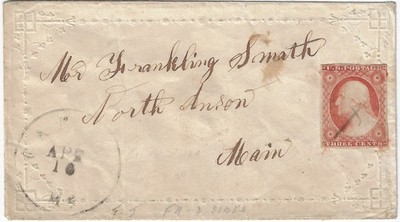 Mr Frankling Smath
North Anson
Main
U.S. POSTAGE
THREE CENTS
APR
10
ME